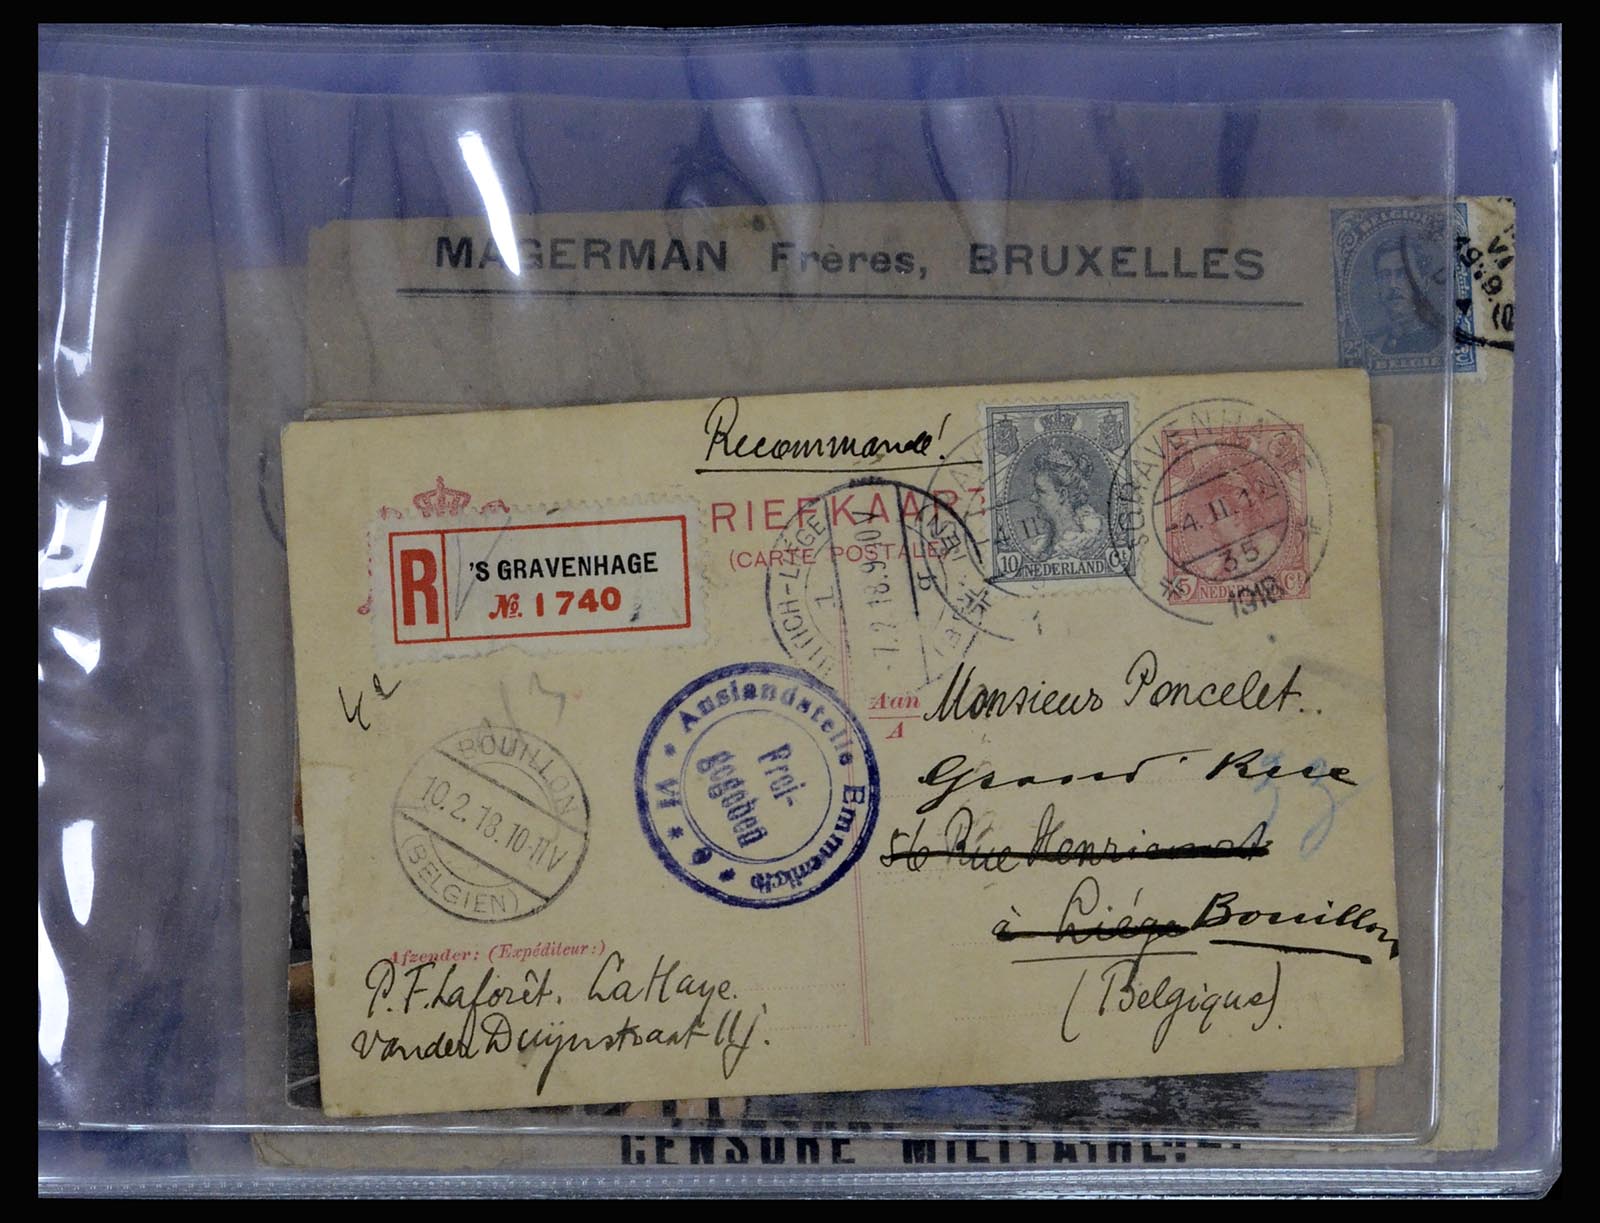 MAGERMAN Frères, BRUXELLES
BELGIQUE
25
BELGIË
Recommandé!
RIEFKAART
(CARTE POSTALE)
R
'S GRAVENHAGE
№. 1740
10 NEDERLAND Ct
'S GRAVENHAGE
-4.II.12
35
1918
5 NEDERLAND Ct
LÜTTICH-LIÈGE
7.2.18.9-10V
b
BOUILLON
10.2.18.10-11V
(BELGIEN)
Auslandstelle Emmerich
Frei-
gegeben
Aan
A
Monsieur Poncelet.
Grand' Rue
56 Rue Henricourt
à Liége Bouillon
(Belgique)
Afzender: (Expéditeur:)
P. F. Laforêt. La Haye.
van der Duynstraat 114.
CENSURE MILITAIRE.